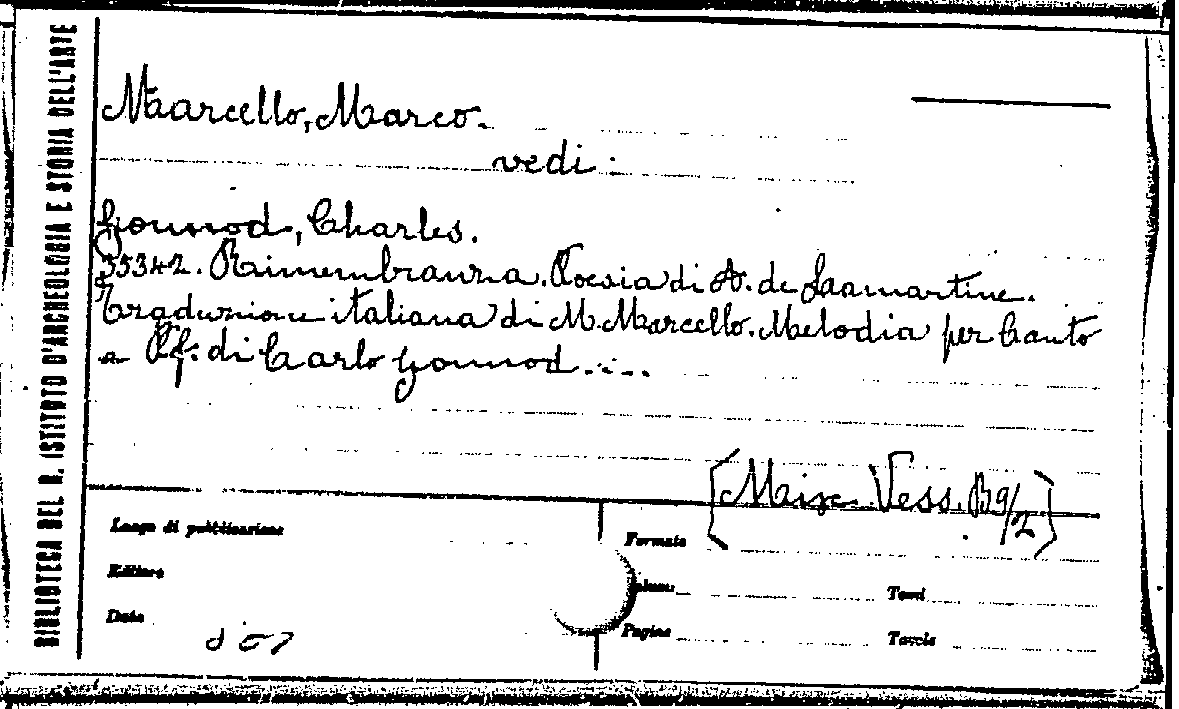 BIBLIOTECA DEL R. ISTITUTO D'ARCHEOLOGIA E STORIA DELL'ARTE
Marcello, Marco.
vedi:
Gounod, Charles.
55342. Rimembranza. Poesia di A. de Lamartine.
Traduzione italiana di M. Marcello. Melodia per Canto
e Pf. di Carlo Gounod....
[Misc. Vess. B9/2]
Luogo di pubblicazione
Formato
Editore
Tomi
Data
Pagine
Tavole